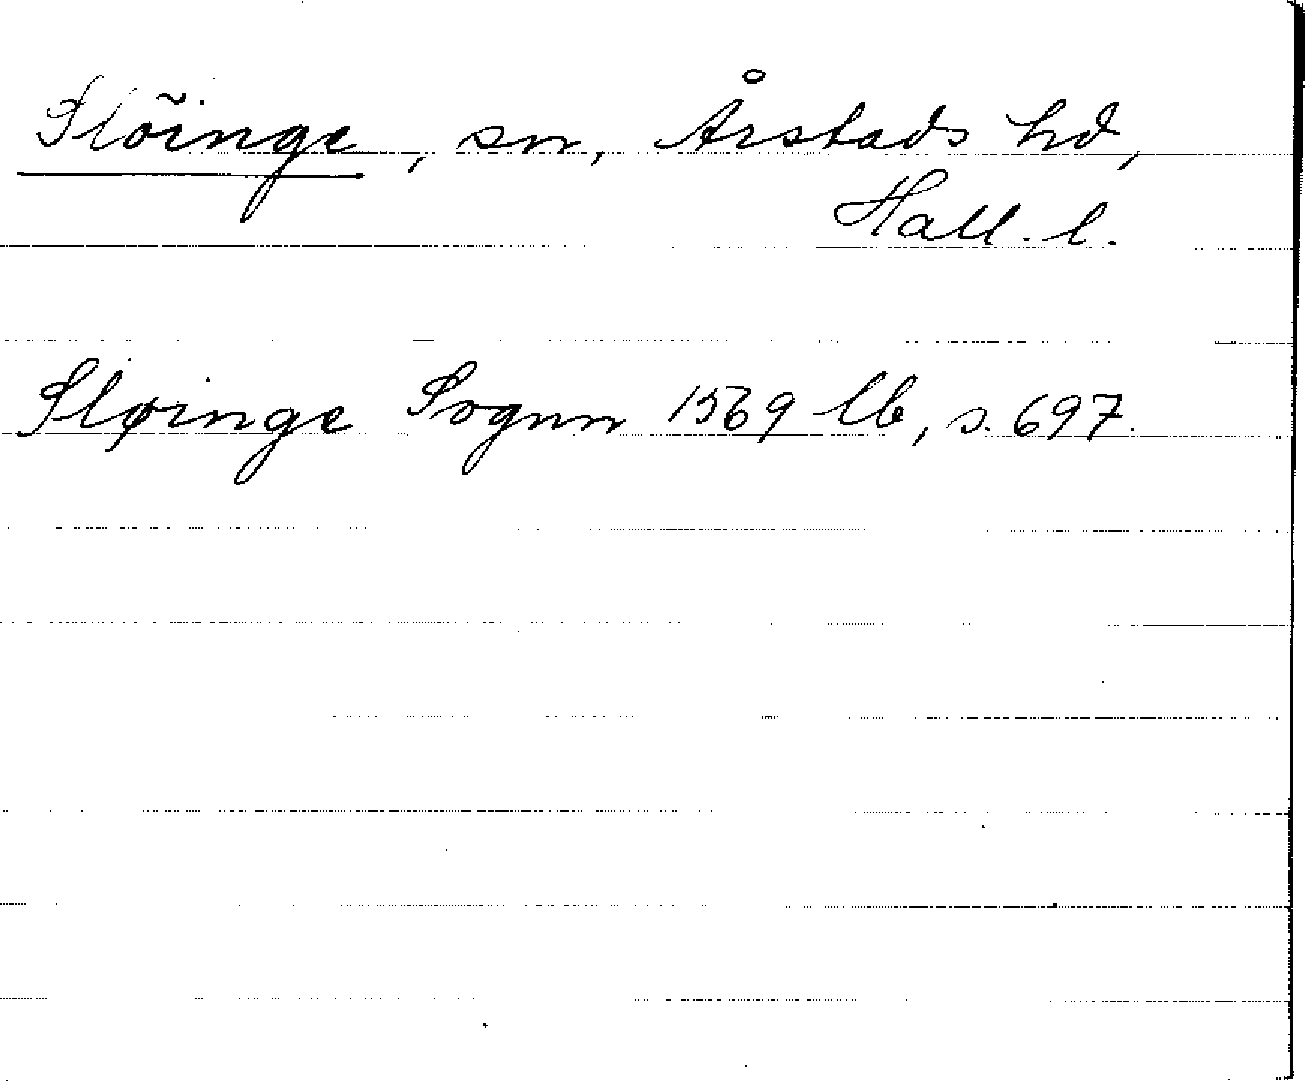 Slöinge, sn, Årstads hd,
Hall. l.
Sløinge Sognn 1569 lb, s. 697.